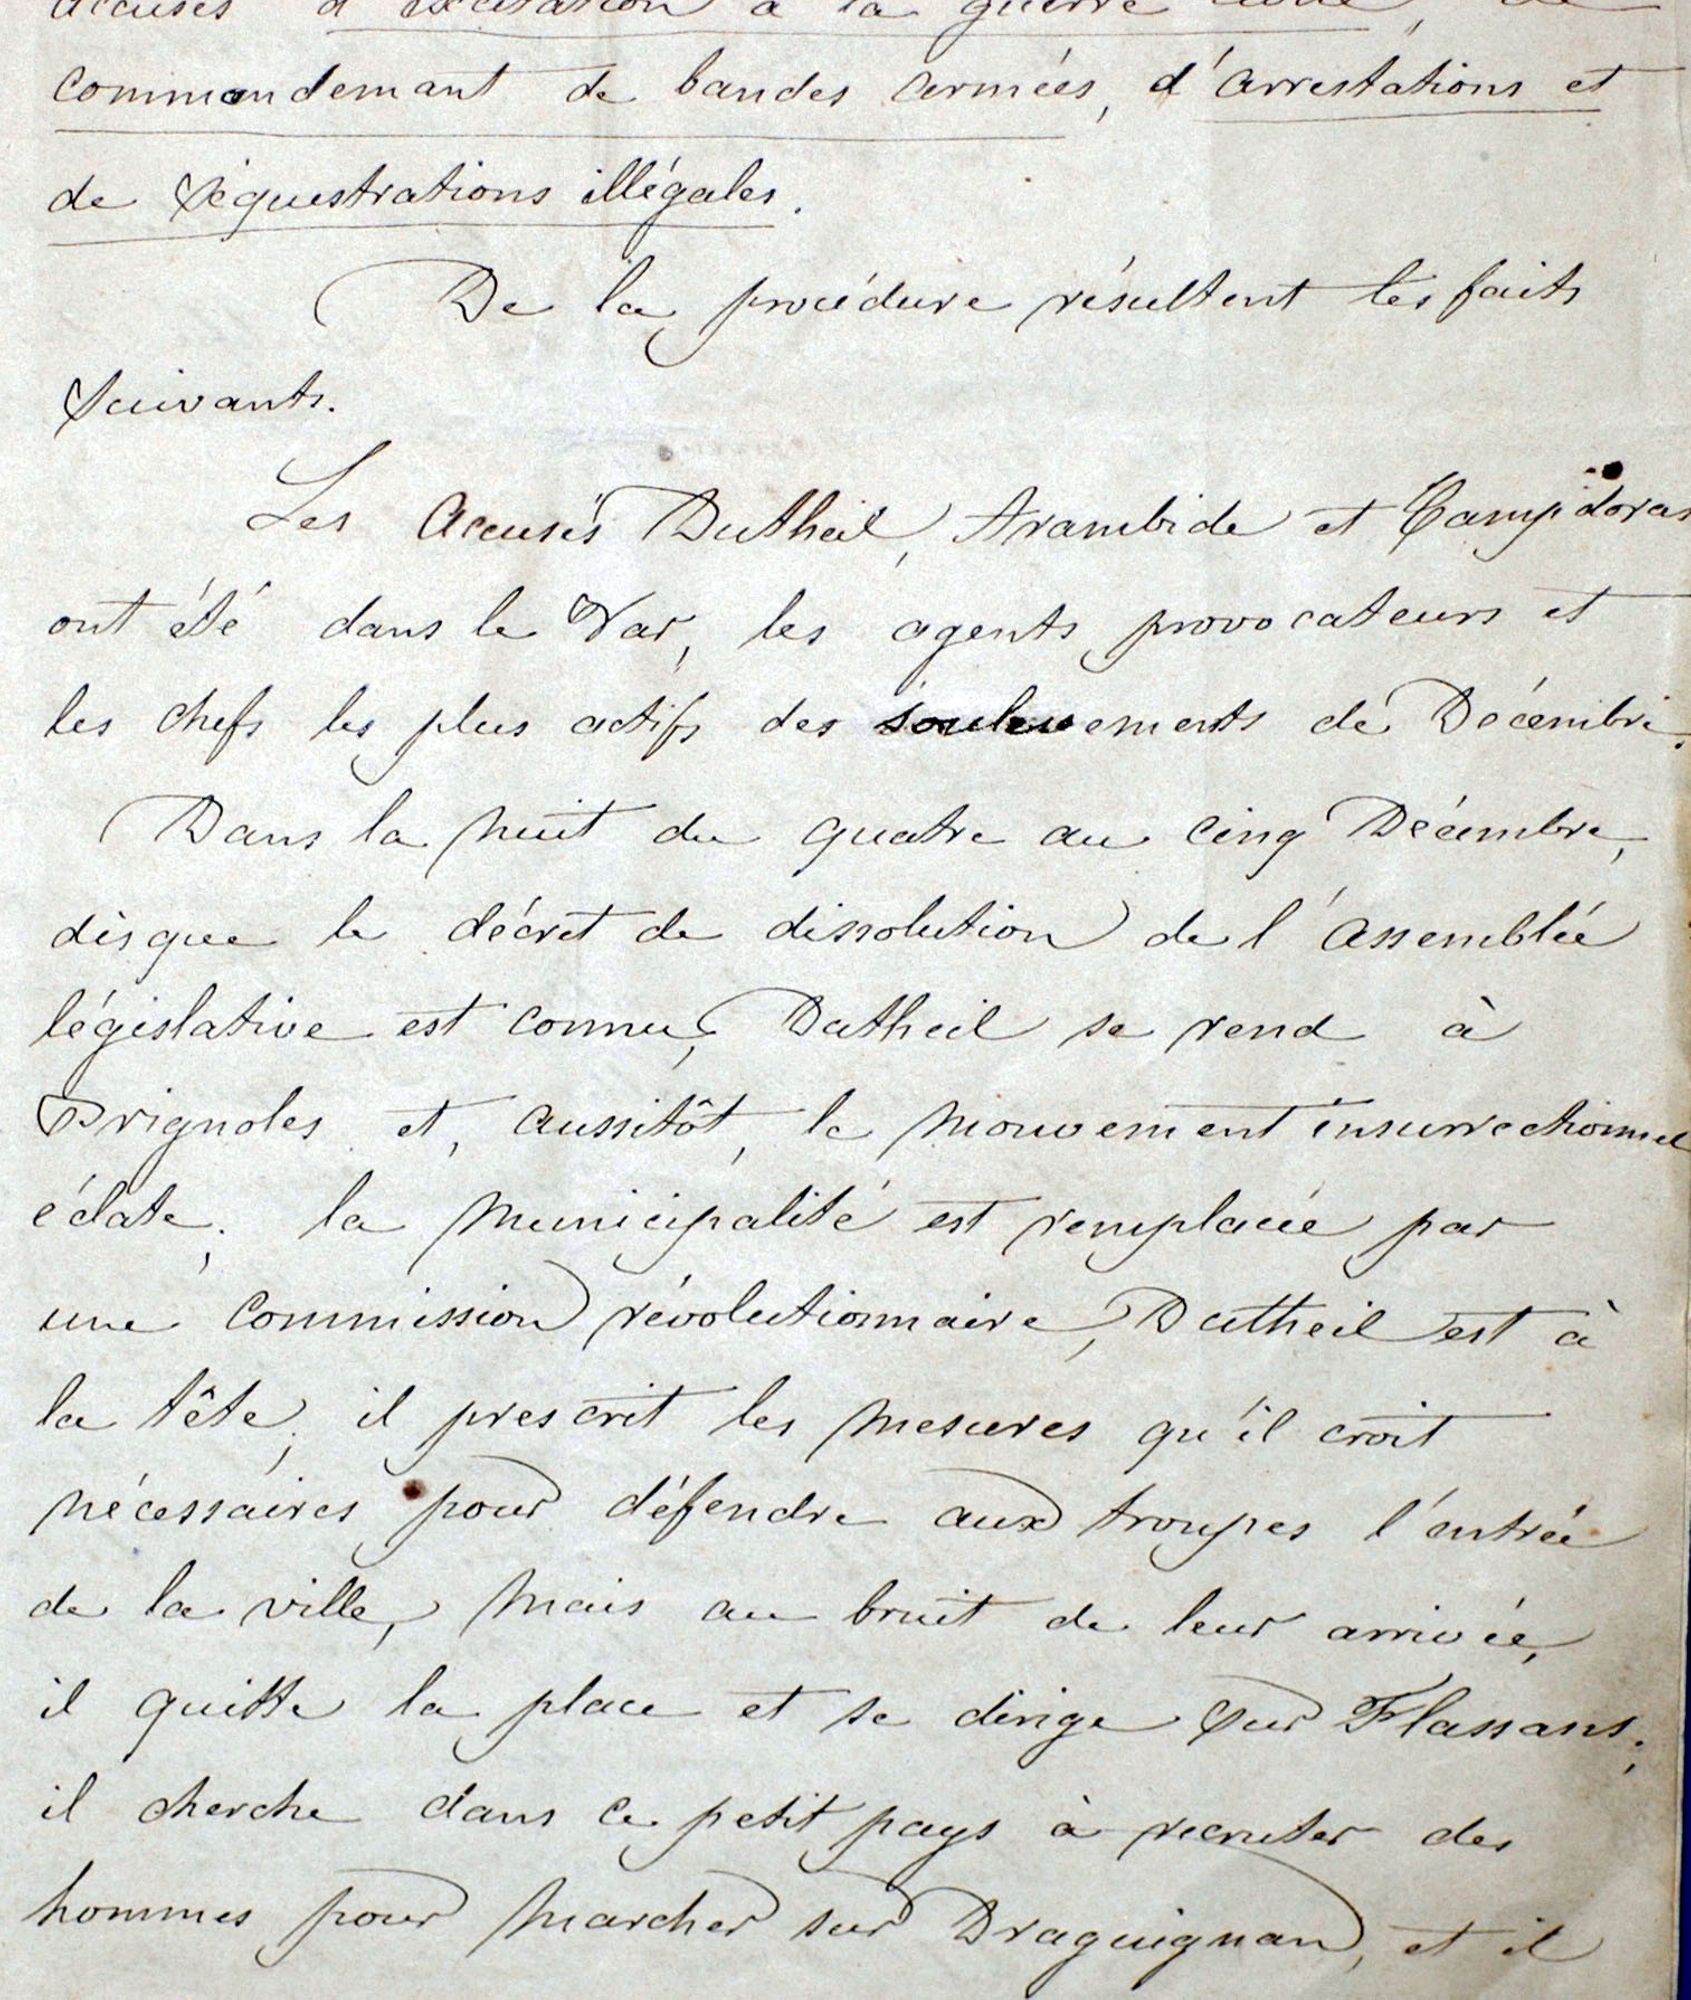 accusés d'excitation à la guerre civile, de
commandemant de bandes armées, d'arrestations et
de séquestrations illégales.
De la procédure résultent les faits
suivants.
Les Accusés Dutheil, Arambide et Campdoras
ont été dans le Var, les agents provocateurs et
les chefs les plus actifs des soulevements de Décembre.
Dans la nuit du quatre au cinq Décembre,
dèsque le décret de dissolution de l'Assemblée
législative est connu, Dutheil se rend à
Brignoles et, aussitôt, le mouvement insurrectionnel
éclate; la Municipalité est remplacée par
une Commission révolutionnaire, Dutheil est à
la tête; il prescrit les mesures qu'il croit
nécessaires pour défendre aux troupes l'entrée
de la ville, mais au bruit de leur arrivée,
il quitte la place et se dirige sur Flassans;
il cherche dans ce petit pays à recruter des
hommes pour marcher sur Draguignan, et il